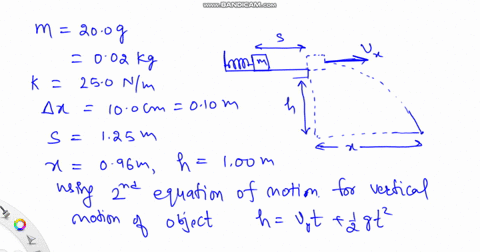 WWW.BANDICAM.COM
m = 20.0g
= 0.02 kg
K = 25.0 N/m
Δx = 10.0cm = 0.10 m
S = 1.25 m
x = 0.96m, h = 1.00 m
using 2nd equation of motion for vertical
motion of object h = Vyt + ½gt²
S
m
Vx
h
x